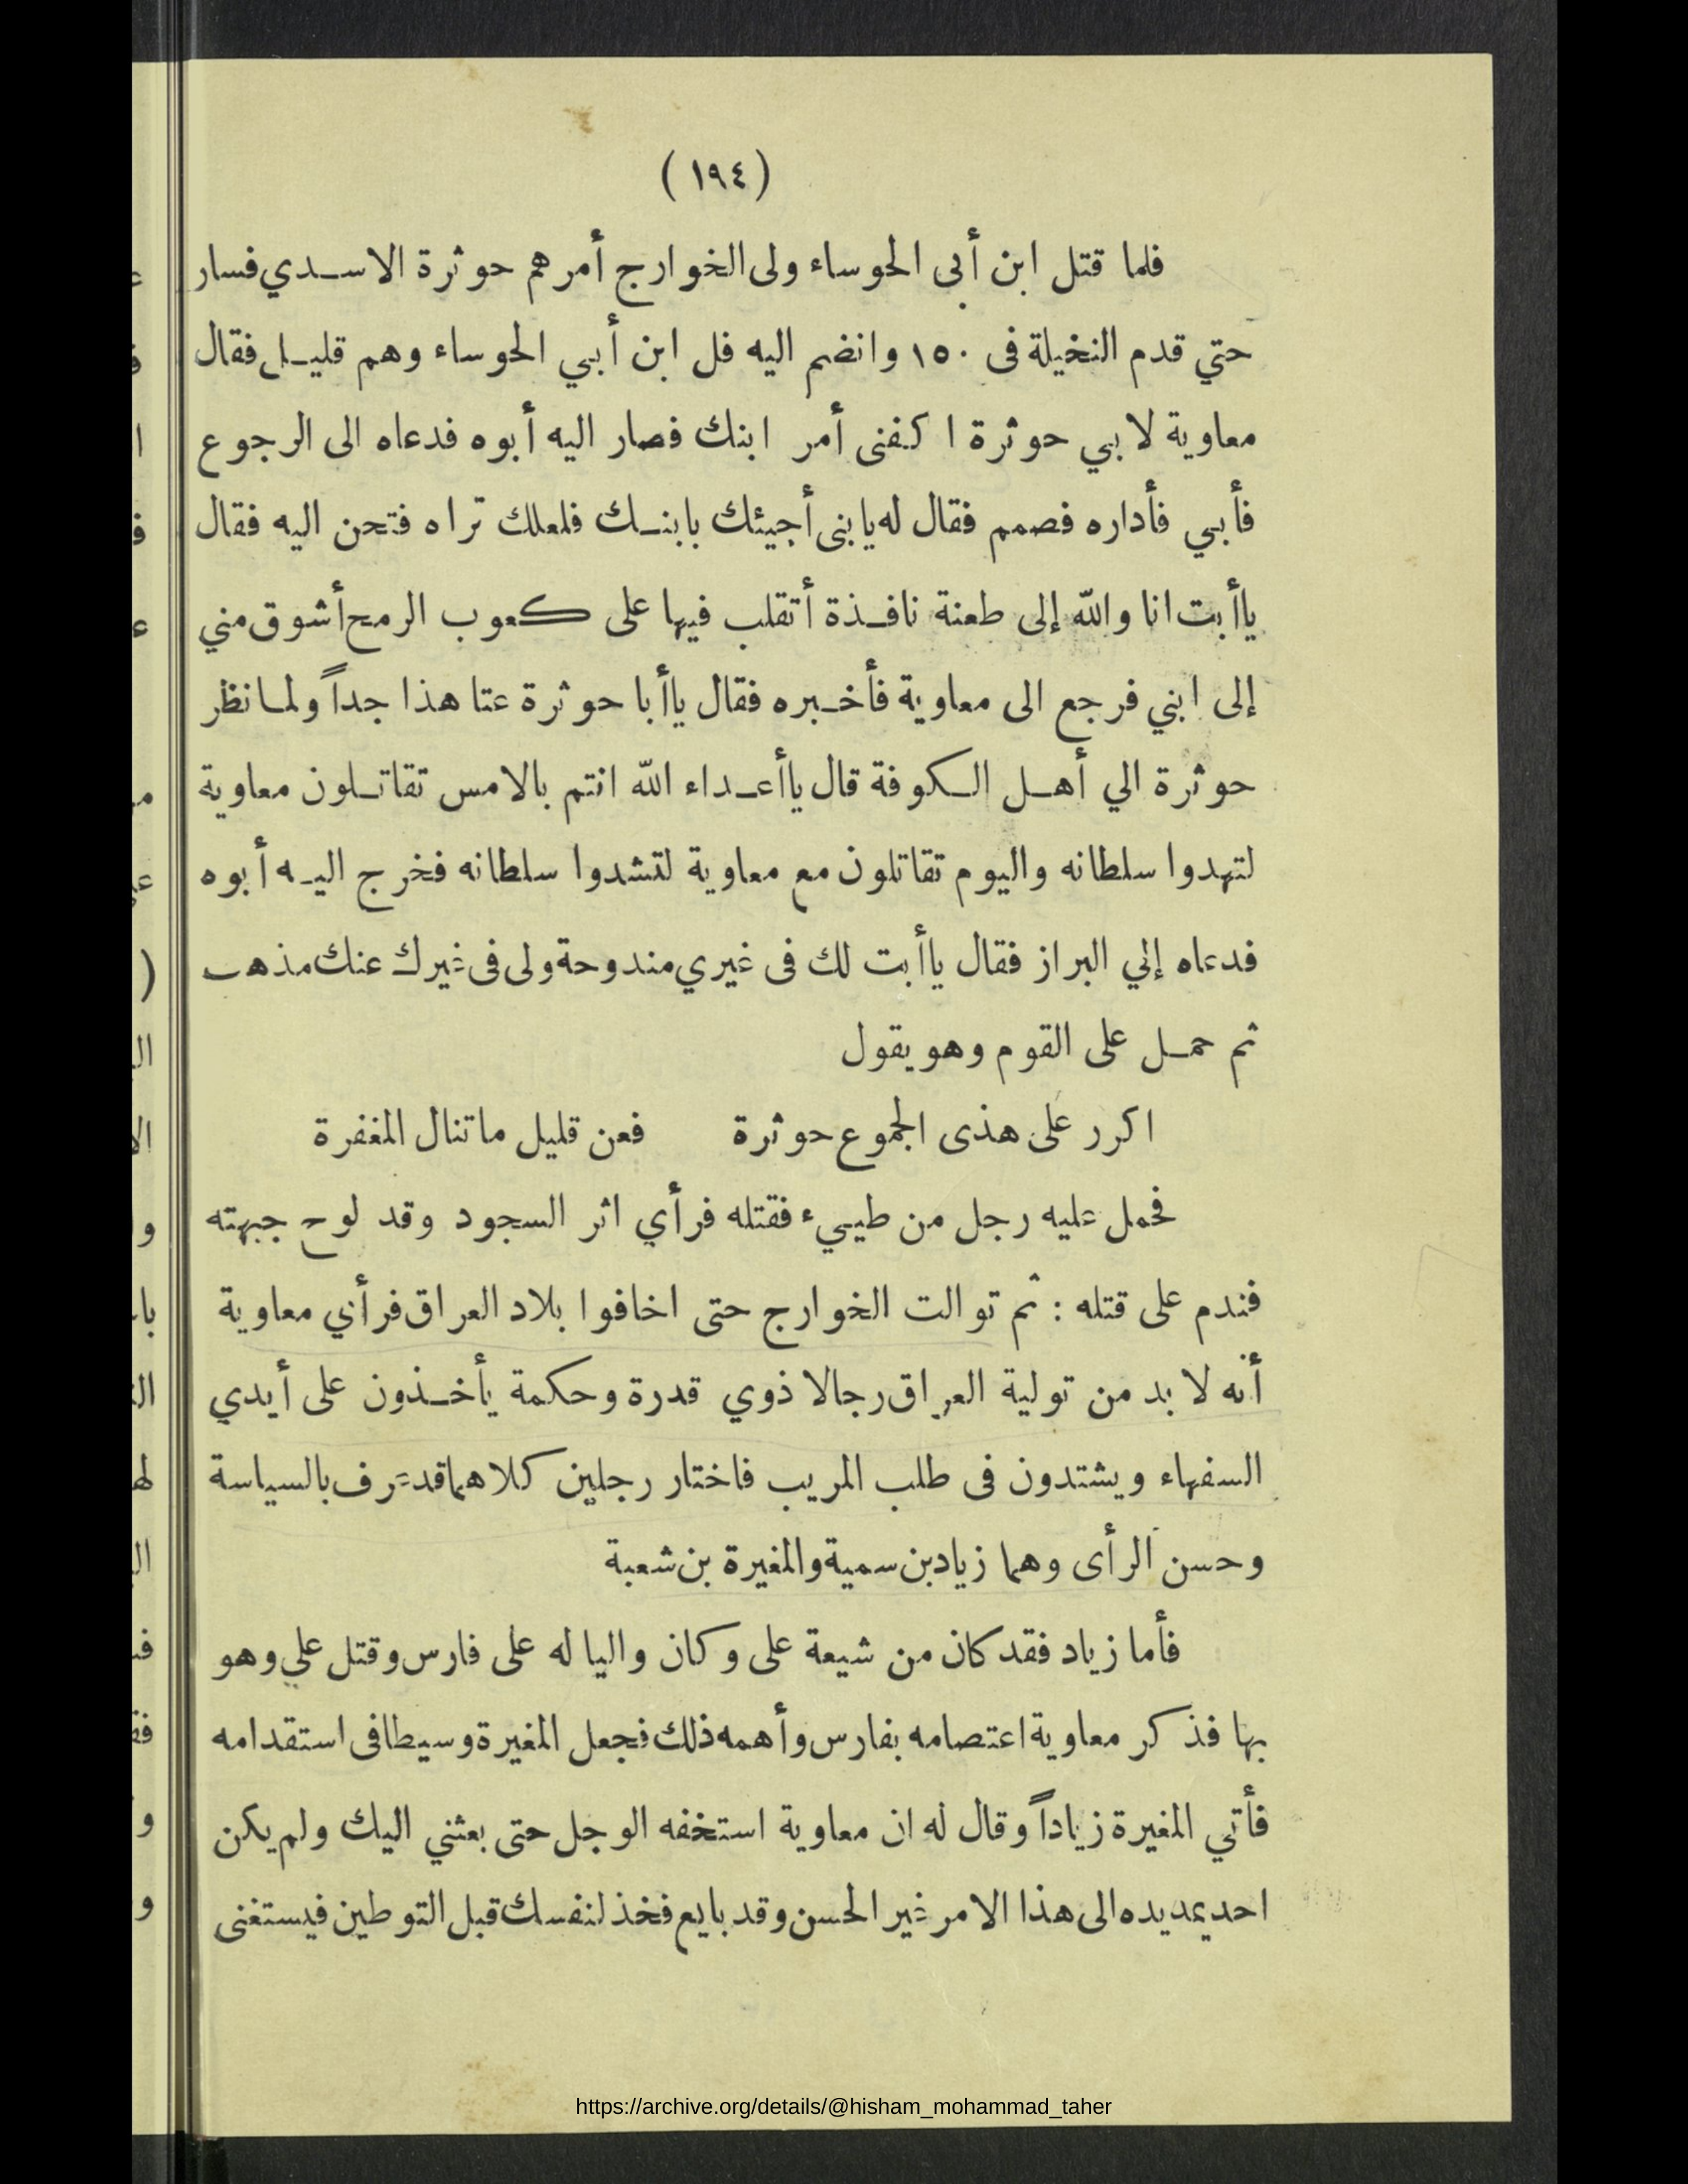 (١٩٤)
فلما قتل ابن أبى الحوساء ولى الخوارج أمرهم حوثرة الاسدي فسار
حتي قدم النخيلة فى ١٥٠ وانضم اليه فل ابن أبي الحوساء وهم قليل فقال
معاوية لابي حوثرة اكفنى أمر ابنك فصار اليه أبوه فدعاه الى الرجوع
فأبي فأداره فصمم فقال له يابنى أجيئك بابنك فلعلك تراه فتحن اليه فقال
ياأبت انا والله إلى طعنة نافذة أتقلب فيها على كعوب الرمح أشوق مني
إلى ابني فرجع الى معاوية فأخبره فقال ياأبا حوثرة عتا هذا جداً ولما نظر
حوثرة الي أهل الكوفة قال ياأعداء الله انتم بالامس تقاتلون معاوية
لتهدوا سلطانه واليوم تقاتلون مع معاوية لتشدوا سلطانه فخرج اليه أبوه
فدعاه إلي البراز فقال ياأبت لك فى غيري مندوحة ولى فى غيرك عنك مذهب
ثم حمل على القوم وهو يقول
اكرر على هذى الجموع حوثرة فعن قليل ماتنال المغفرة
فحمل عليه رجل من طييء فقتله فرأي اثر السجود وقد لوح جبهته
فندم على قتله : ثم توالت الخوارج حتى اخافوا بلاد العراق فرأي معاوية
أنه لا بد من تولية العراق رجالا ذوي قدرة وحكمة يأخذون على أيدي
السفهاء ويشتدون فى طلب المريب فاختار رجلين كلاهما قد عرف بالسياسة
وحسن الرأى وهما زياد بن سمية والمغيرة بن شعبة
فأما زياد فقد كان من شيعة على وكان واليا له على فارس وقتل علي وهو
بها فذكر معاوية اعتصامه بفارس وأهمه ذلك فجعل المغيرة وسيطا فى استقدامه
فأتي المغيرة زياداً وقال له ان معاوية استخفه الوجل حتى بعثني اليك ولم يكن
احد يمد يده الى هذا الامر غير الحسن وقد بايع فخذ لنفسك قبل التوطين فيستغنى
https://archive.org/details/@hisham_mohammad_taher